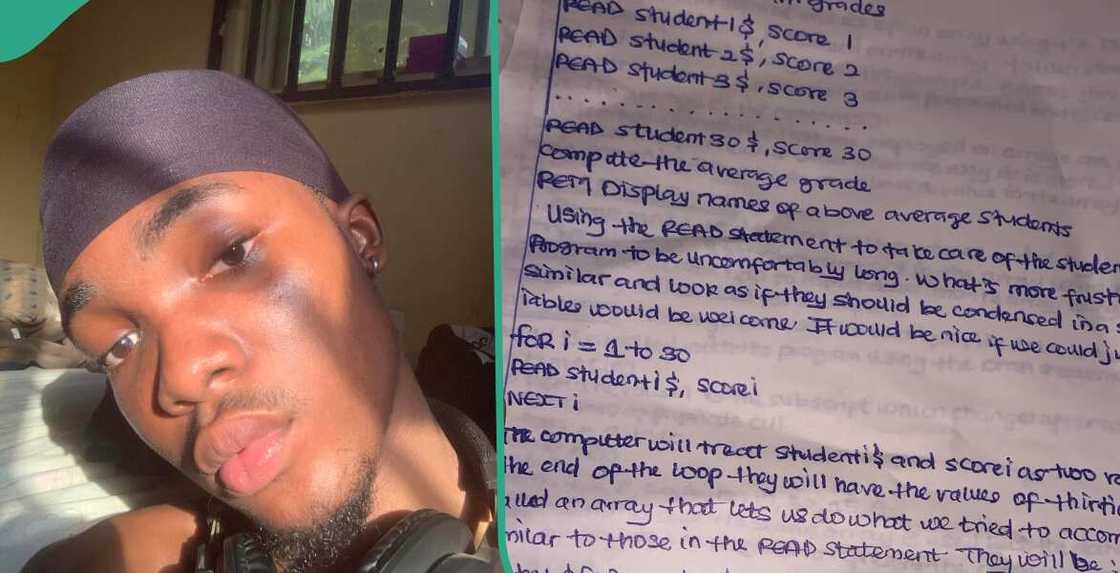 grades
READ student1$, score 1
READ student 2$, score 2
READ student 3$, score 3
..................
READ student 30 $, score 30
compute the average grade
REM Display names of above average students
Using the READ statement to take care of the studen
Program to be uncomfortably long. What's more frust
similar and look as if they should be condensed in a
iables would be welcome. It would be nice if we could ju
foR i = 1 to 30
READ studenti$, scorei
NEXT i
The computer will treat studenti$ and scorei as two
the end of the loop they will have the values of
an array that lets us do what we tried to accom
milar to those in the READ statement They will be